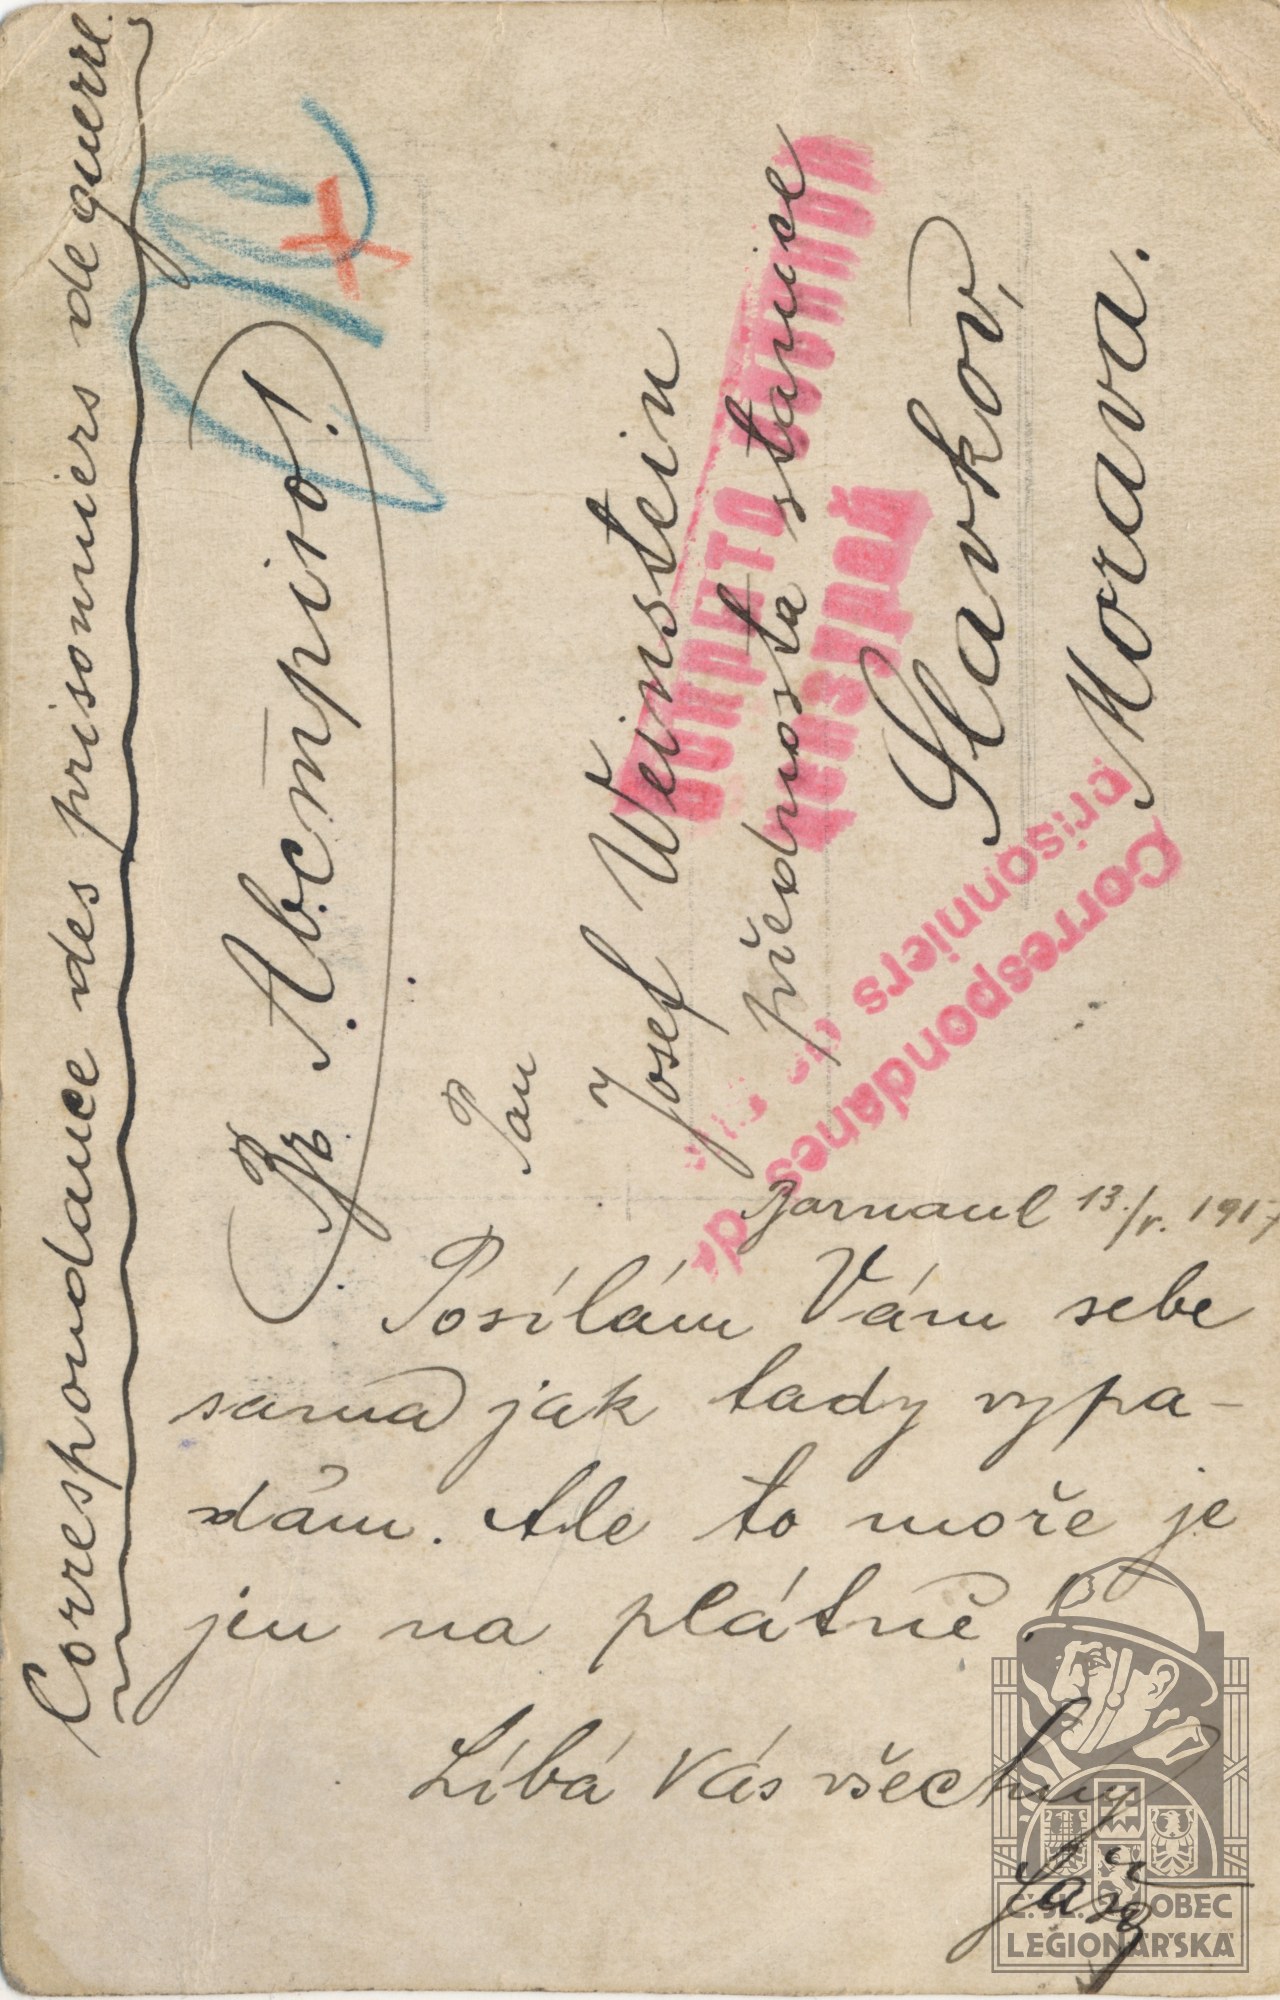 Correspondance des prisonniers de guerre.
Въ Австрiю!
Pan
Josef Weinstein
přednosta stanice
Slavkov,
Morava.
ВСКРЫТО ВОЕННОЙ
ЦЕНЗУРОЙ
Correspondances de
prisonniers de
Barnaul 13./V. 1917
Posílám Vám sebe
sama jak tady vypa-
dám. Ale to moře je
jen na plátně!
Líbá Vás všechny
Č. SL. OBEC
LEGIONÁŘSKÁ